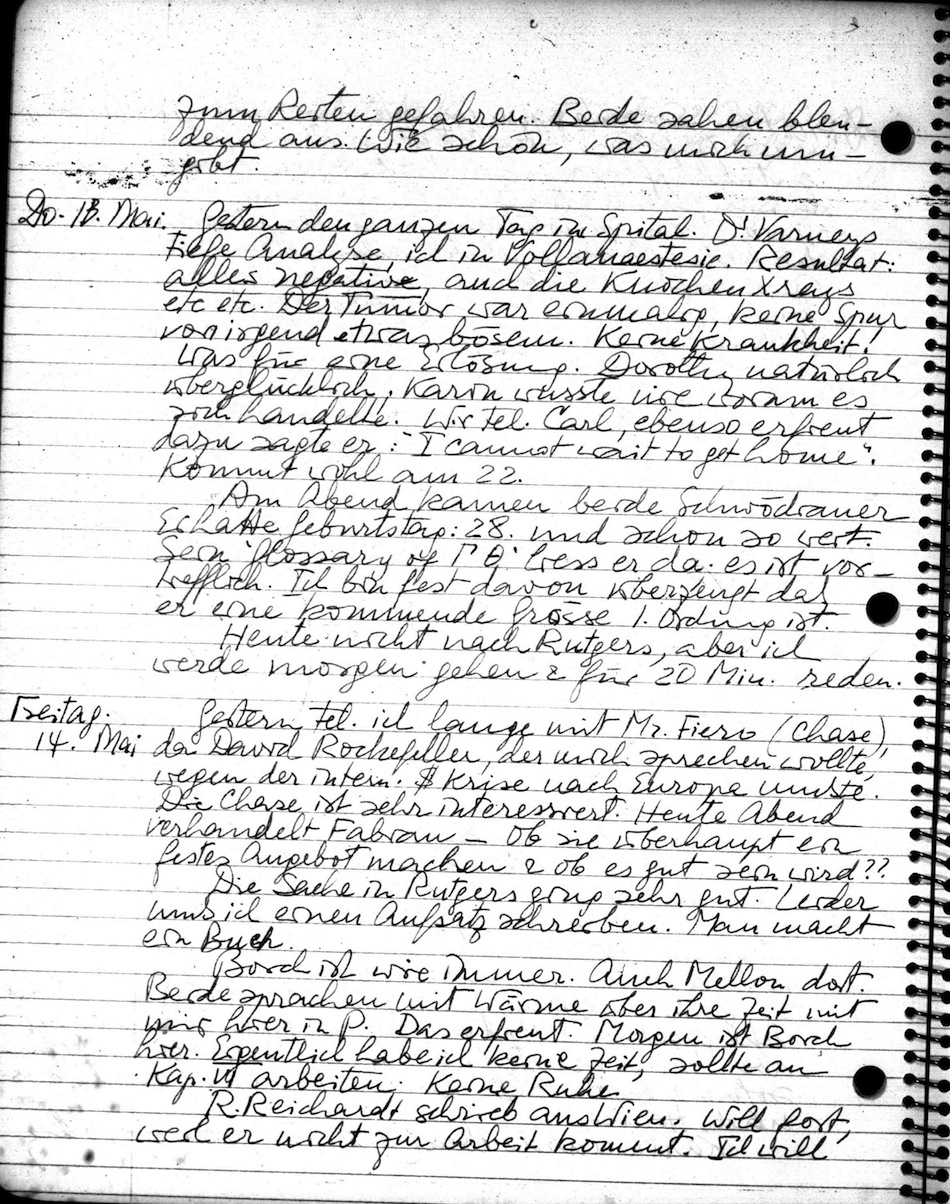 zum Reiten gefahren. Beide sahen blen-
dend aus. Wie schön, was mich um-
gibt.
Do. 13. Mai. Gestern den ganzen Tag in Spital. Dr Varneys
tiefe Analyse, ich in Vollanaestesie. Resultat:
alles negative, auch die Knochen Xrays
etc etc. Der Tumor war einmalig, keine Spur
von irgend etwas bösem. Keine Krankheit!
Was für eine Erlösung. Dorothy natürlich
überglücklich. Karin wusste nie worum es
sich handelte. Wir tel. Carl, ebenso erfreut
dazu sagte er: "I cannot wait to get home".
Kommt wohl am 22.
Am Abend kamen beide Schwödiauer
Er hatte Geburtstag: 28. und schon so weit.
Sein 'Glossary of Γ Θ' liess er da: es ist vor-
trefflich. Ich bin fest davon überzeugt das
er eine kommende Grösse 1. Ordnung ist.
Heute nicht nach Rutgers, aber ich
werde morgen gehen & für 20 Min. reden.
Freitag. Gestern tel. ich lange mit Mr. Fiero (Chase),
14. Mai da David Rockefeller, der mich sprechen wollte,
wegen der intern. $ Krise nach Europa musste.
Die Chase ist sehr interessiert. Heute Abend
verhandelt Fabian – Ob sie überhaupt ein
festes Angebot machen & ob es gut sein wird??
Die Sache in Rutgers ging sehr gut. Leider
muss ich einen Aufsatz schreiben. Man macht
ein Buch.
Borch ist wie immer. Auch Mellon dort.
Beide sprachen mit Wärme über ihre Zeit mit
mir hier in P. Das erfreut. Morgen ist Borch
hier. Eigentlich habe ich keine Zeit, sollte an
Kap. VI arbeiten. Keine Ruhe.
R. Reichardt schrieb aus Wien. Will fort,
weil er nicht zur Arbeit kommt. Ich will